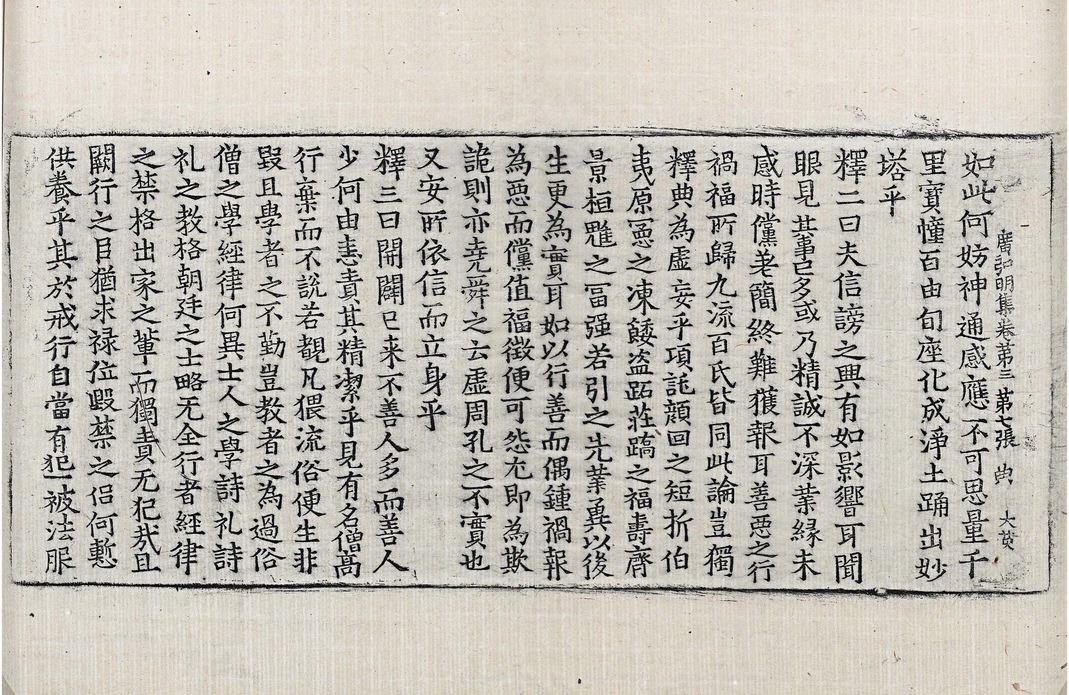 廣弘明集卷第三 第七張 典 大黄
如此何妨神通感應不可思量千
里寶幢百由旬座化成淨土踊出妙
塔乎
釋二曰夫信謗之興有如影響耳聞
眼見其事已多或乃精誠不深業緣未
感時儻差簡終難獲報耳善惡之行
禍福所歸九流百氏皆同此論豈獨
釋典為虛妄乎項託顔回之短折伯
夷原憲之凍餧盗跖莊蹻之福壽齊
景桓魋之冨强若引之先業兾以後
生更為實耳如以行善而偶鍾禍報
為惡而儻值福徵便可怨尤即為欺
詭則亦堯舜之云虛周孔之不實也
又安所依信而立身乎
釋三曰開闢已来不善人多而善人
少何由悉責其精潔乎見有名僧高
行棄而不說若覩凡猥流俗便生非
毀且學者之不勤豈教者之為過俗
僧之學經律何異士人之學詩礼詩
礼之教格朝廷之士略无全行者經律
之禁格出家之輩而獨責无犯哉且
闕行之臣猶求禄位毀禁之侣何慙
供養乎其於戒行自當有犯一被法服